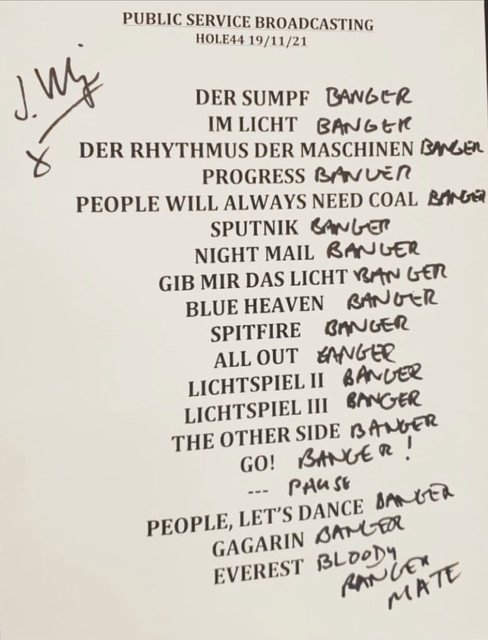 PUBLIC SERVICE BROADCASTING
HOLE44 19/11/21
DER SUMPF BANGER
IM LICHT BANGER
DER RHYTHMUS DER MASCHINEN BANGER
PROGRESS BANGER
PEOPLE WILL ALWAYS NEED COAL BANGER
SPUTNIK BANGER
NIGHT MAIL BANGER
GIB MIR DAS LICHT BANGER
BLUE HEAVEN BANGER
SPITFIRE BANGER
ALL OUT BANGER
LICHTSPIEL II BANGER
LICHTSPIEL III BANGER
THE OTHER SIDE BANGER
GO! BANGER!
--- PAUSE
PEOPLE, LET'S DANCE BANGER
GAGARIN BANGER
EVEREST BLOODY
BANGER
MATE